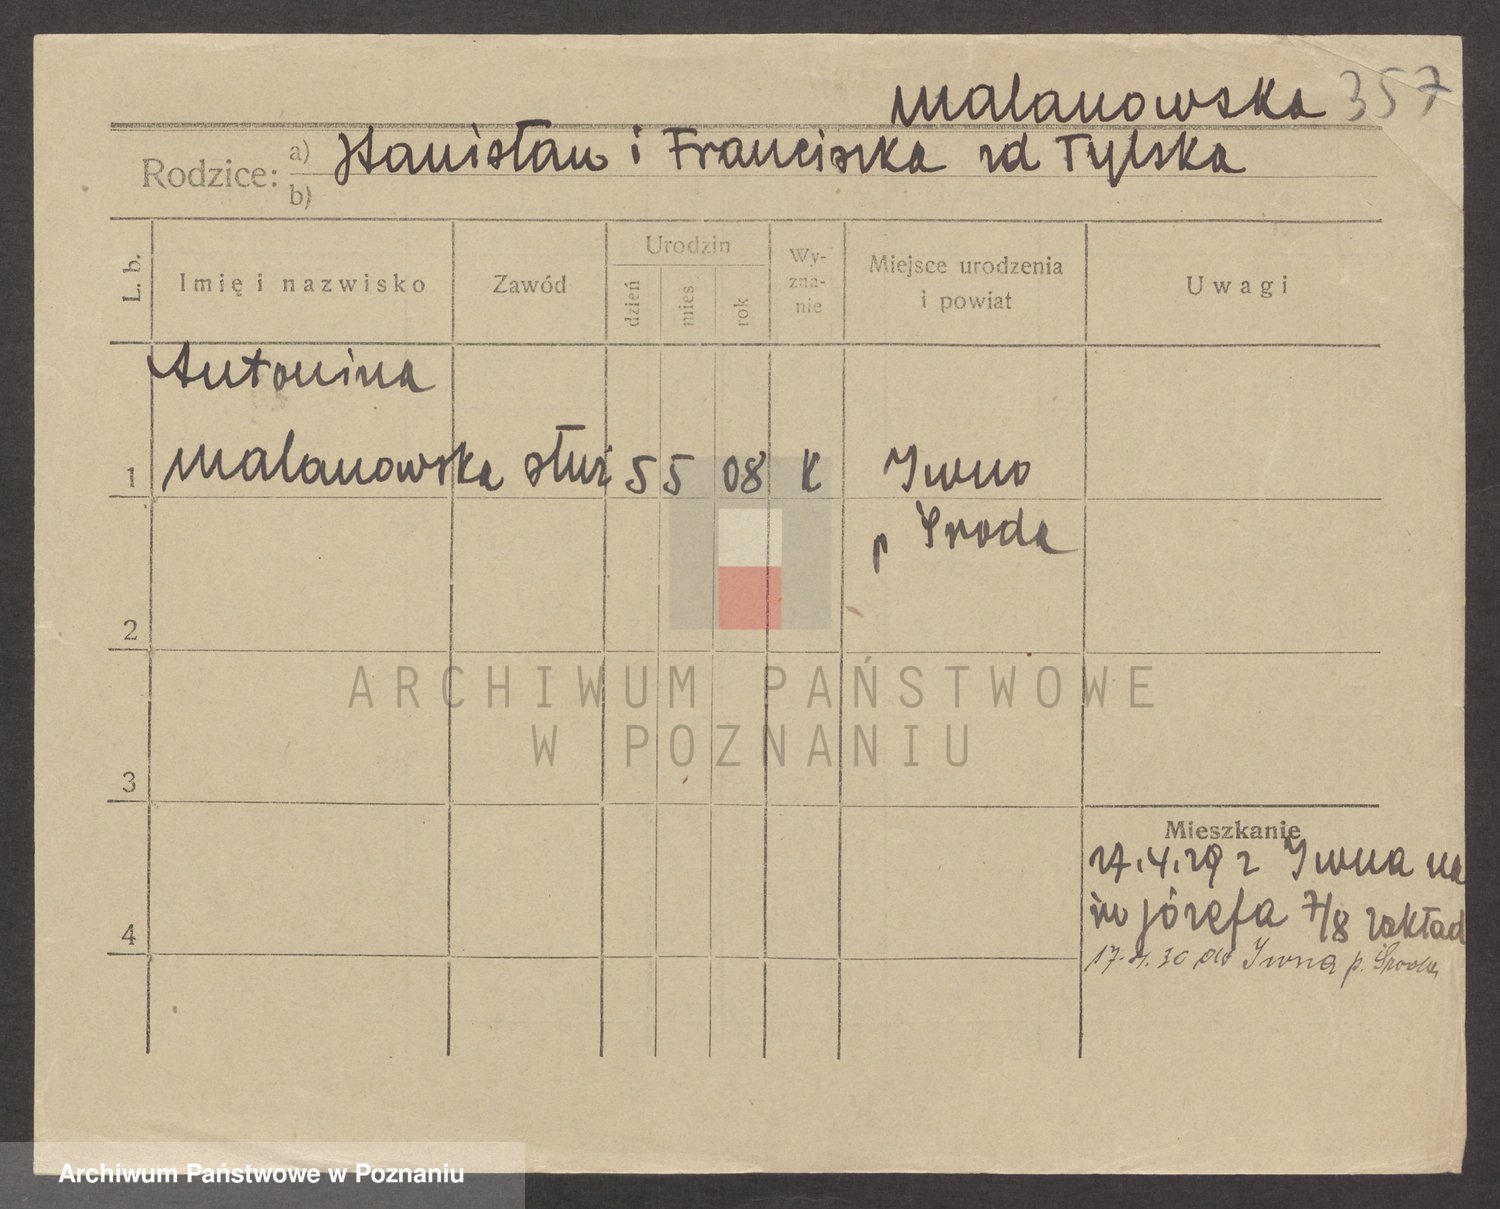 Malanowska 357
Rodzice: a) Stanisław i Franciszka zd Tylska
b)
L. b. Imię i nazwisko Zawód Urodzin dzień mies rok Wy-zna-nie Miejsce urodzenia i powiat Uwagi
Antonina
1 Malanowska służ 5 5 08 K Iwno
p Środa
2
ARCHIWUM PAŃSTWOWE
W POZNANIU
3
Mieszkanie
27.4.29 z Iwna na
św Józefa 7/8 zakład
4
17. 30 do Iwna p. Środa
Archiwum Państwowe w Poznaniu